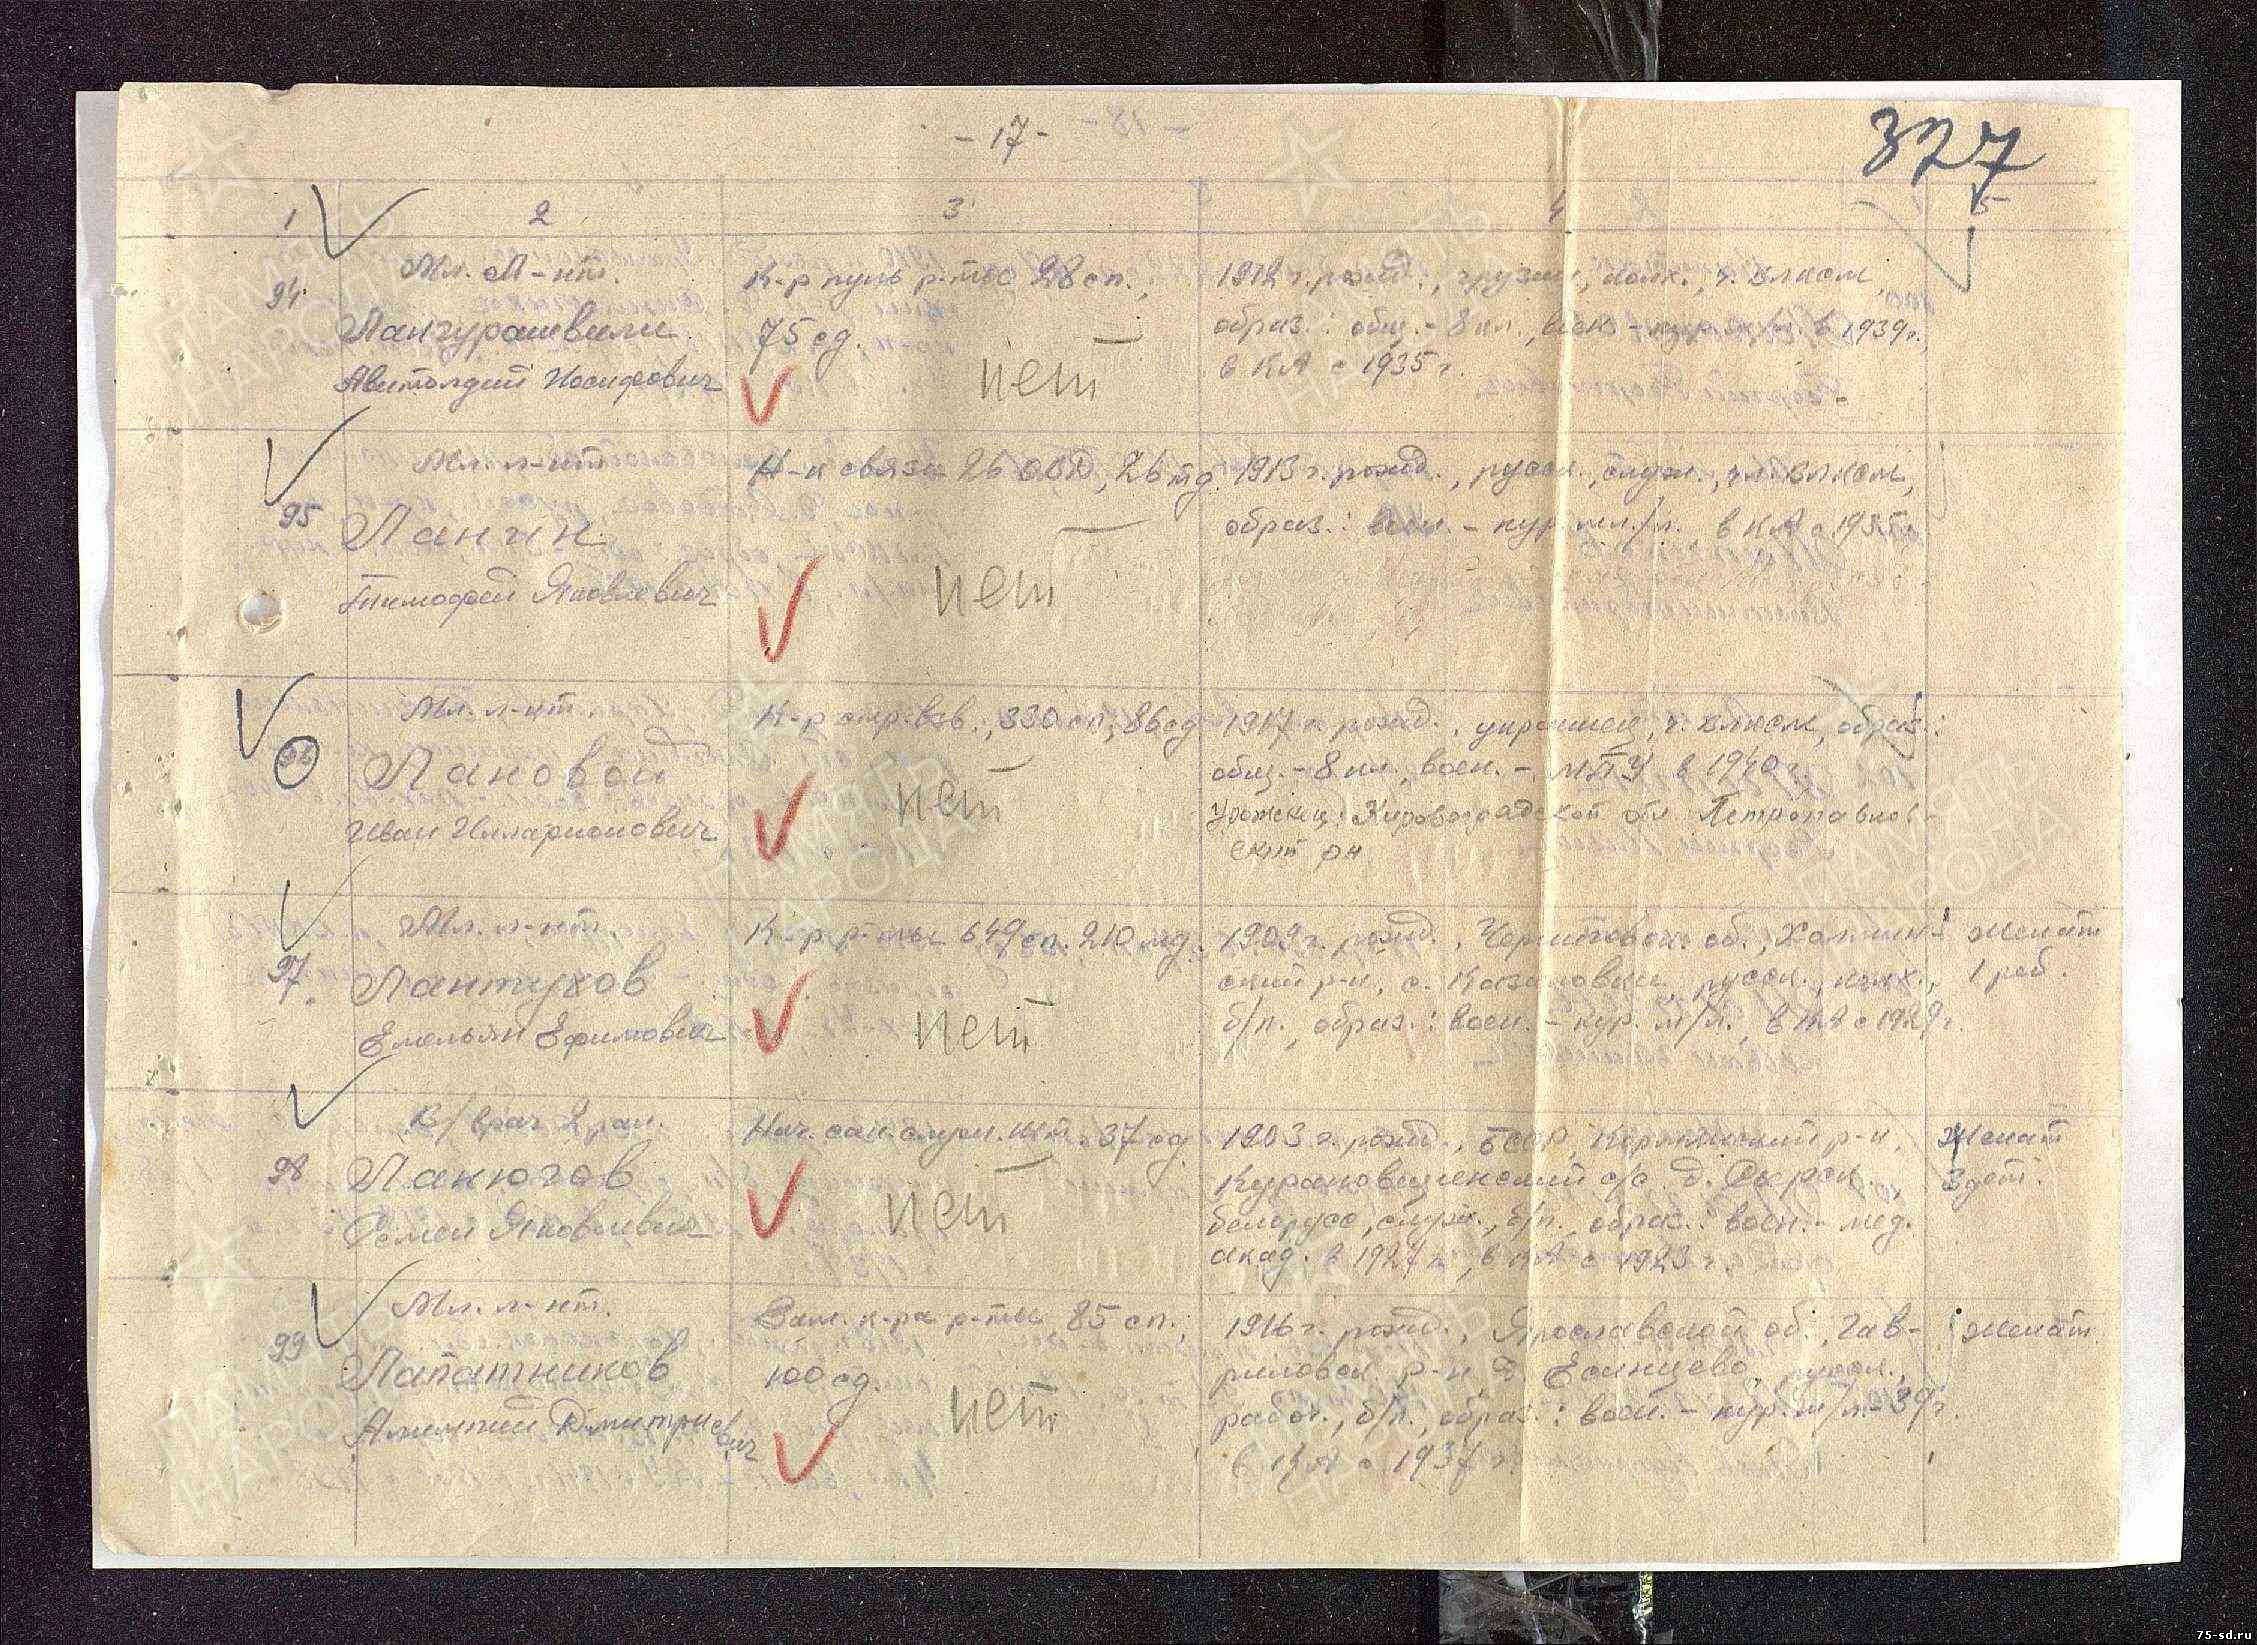 - 17 -
327
1 2 3 4 5
94
Мл. Л-нт.
Панчурашвили
Иосифович
К-р пуль р-ты 28 сп.,
75 сд.
нет
1912 г. рожд., грузин, ч. ВЛКСМ,
образ.: общ. - 8 кл., 1939 г.,
в КА с 1935 г.
95
Мл. л-нт.
Панчин
Тимофей Яковлевич
Н-к связи 26 26 тд.
нет
1913 г. рожд., русск., служ., чл. ВЛКСМ,
образ.: воен. - кур. мл./л. в КА с 1935 г.
96
Мл. л-нт.
Пановой
Иван Илларионович
К-р стр. взв., 330 сп, 86 сд
нет
1917 г. рожд., украинец, ч. ВЛКСМ, образ.:
общ. - 8 кл., воен. - МПУ в 1940 г.
Уроженец Кировоградской обл Петропавлов-
ский рн
97
Мл. л-нт.
Пантухов
Емельян Ефимович
К-р р-ты 649 сп. 210 мд.
нет
1909 г. рожд., Черниговск. об., Холмин-
ский р-н, с. Козиловки, русск.,
б/п., образ.: воен. - кур. м/л., в КА с 1929 г.
Женат
1 реб.
98
В/врач 2 ран.
Панюгов
Семен Яковлевич
Нач. сан. служ. шт. 37 сд
нет
1903 г. рожд., БССР, р-н,
с/с. д.
белорусс, служ., б/п., образ.: воен. - мед.
акад. в 1927 г., в КА с 1923 г.
Женат
3 дет.
99
Мл. л-нт.
Лапатников
Дмитриевич
Зам. к-ра р-ты 85 сп.,
100 сд.
нет
1916 г. рожд., Ярославской об., Гав-
риловск. р-н д. Есянцево, русск.,
рабоч., б/п., образ.: воен. - кур. м/л. - 39 г.
в КА с 1937 г.
Женат
ПАМЯТЬ
НАРОДА
75-sd.ru